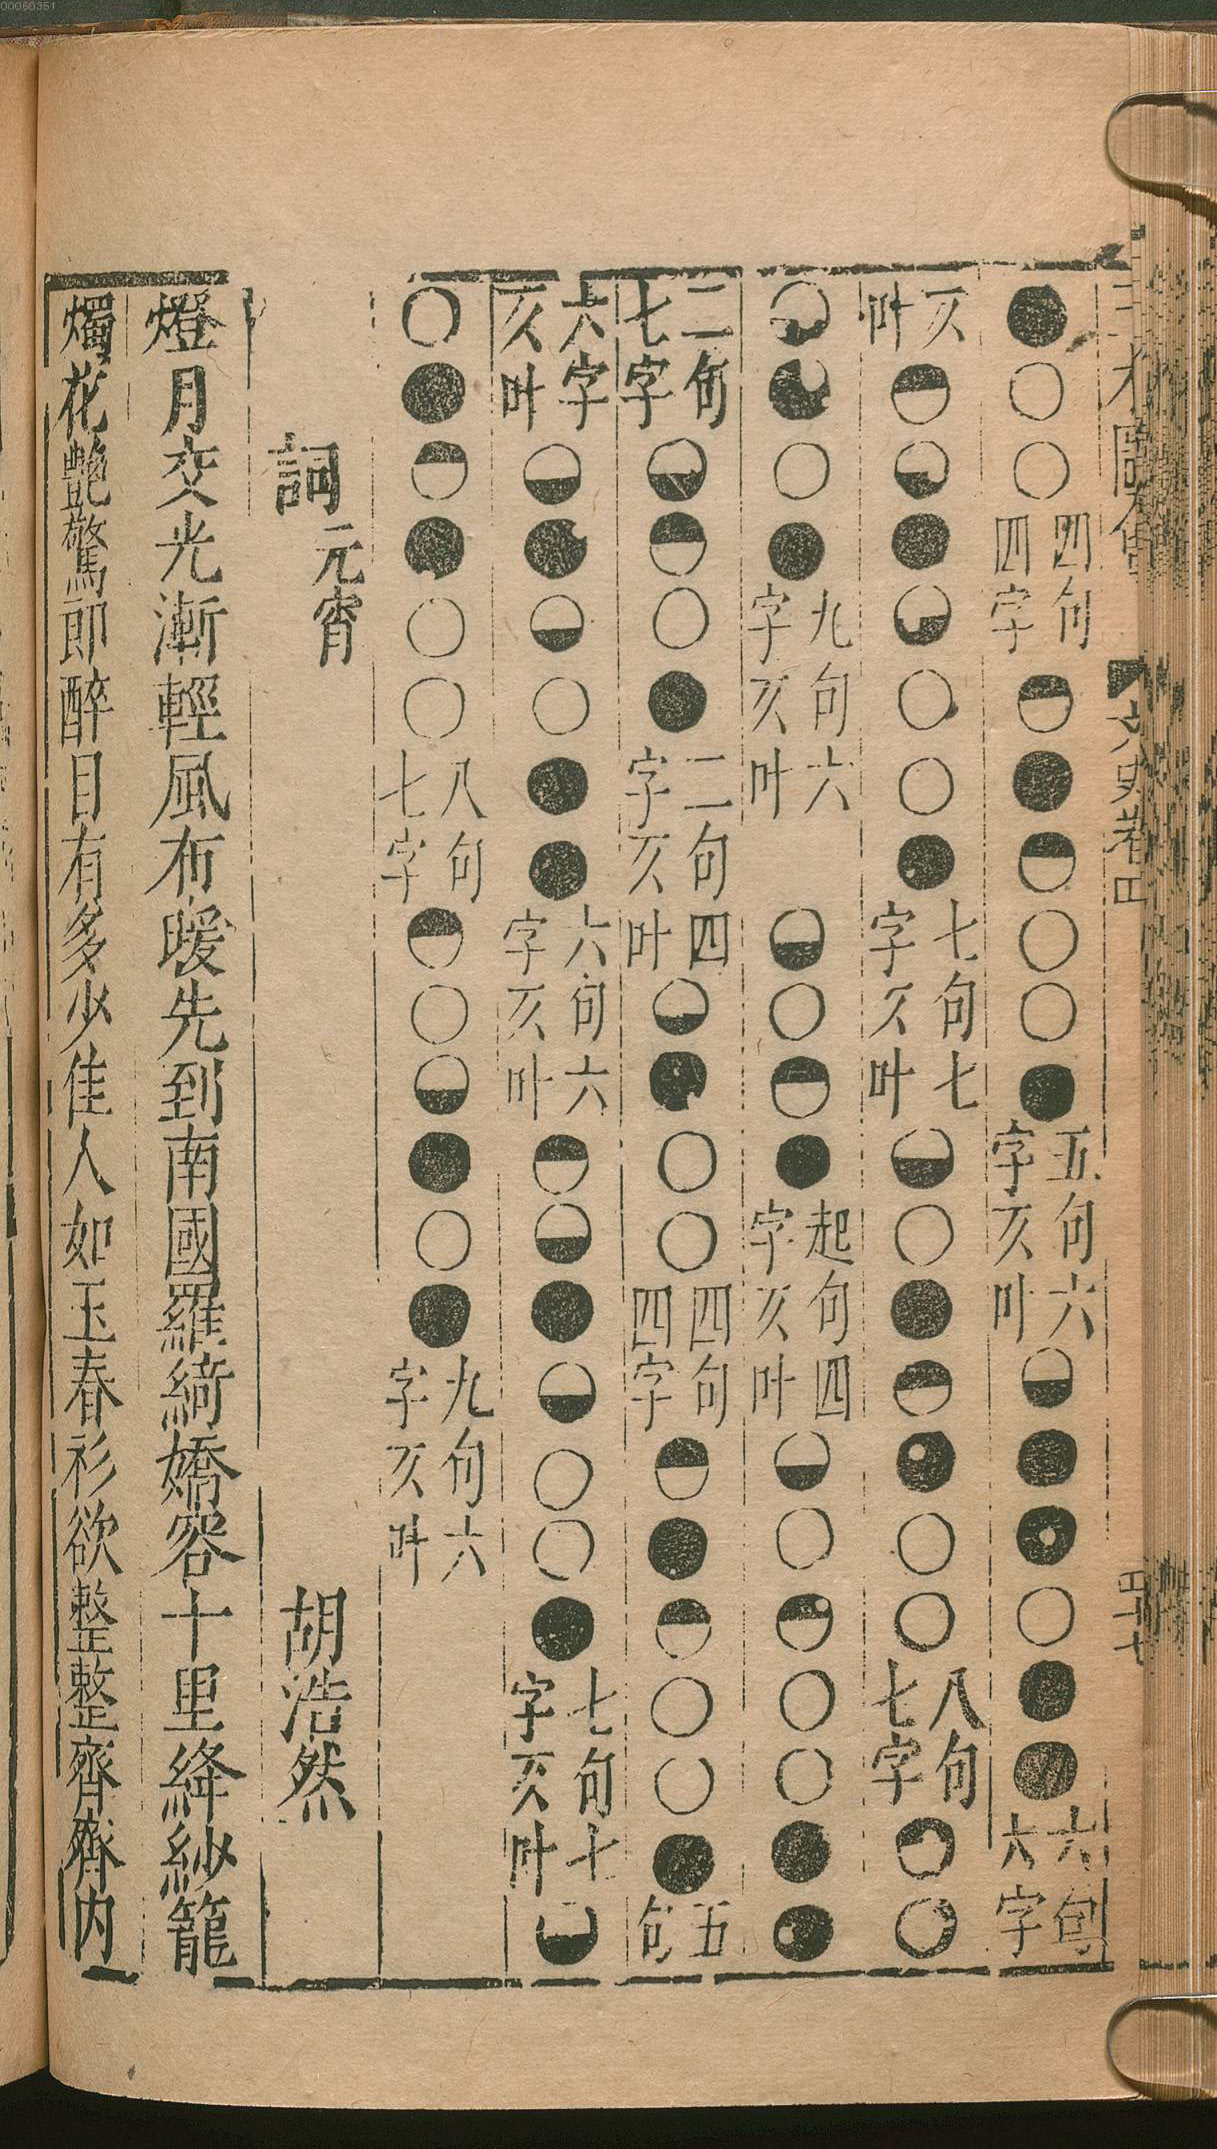 三才圖會 文史卷四 四十七
四句四字 五句六字仄叶 六句六字
仄叶 七句七字仄叶 八句七字
九句六字仄叶 起句四字仄叶
二句七字 二句四字仄叶 四句四字 五句
六字仄叶 六句六字仄叶 七句七字仄叶
八句七字 九句六字仄叶
詞 元宵 胡浩然
燈月交光漸輕風布暖先到南國羅綺嬌容十里絳紗籠
燭花艷驚郎醉目有多少佳人如玉春衫欲整整齊齊内